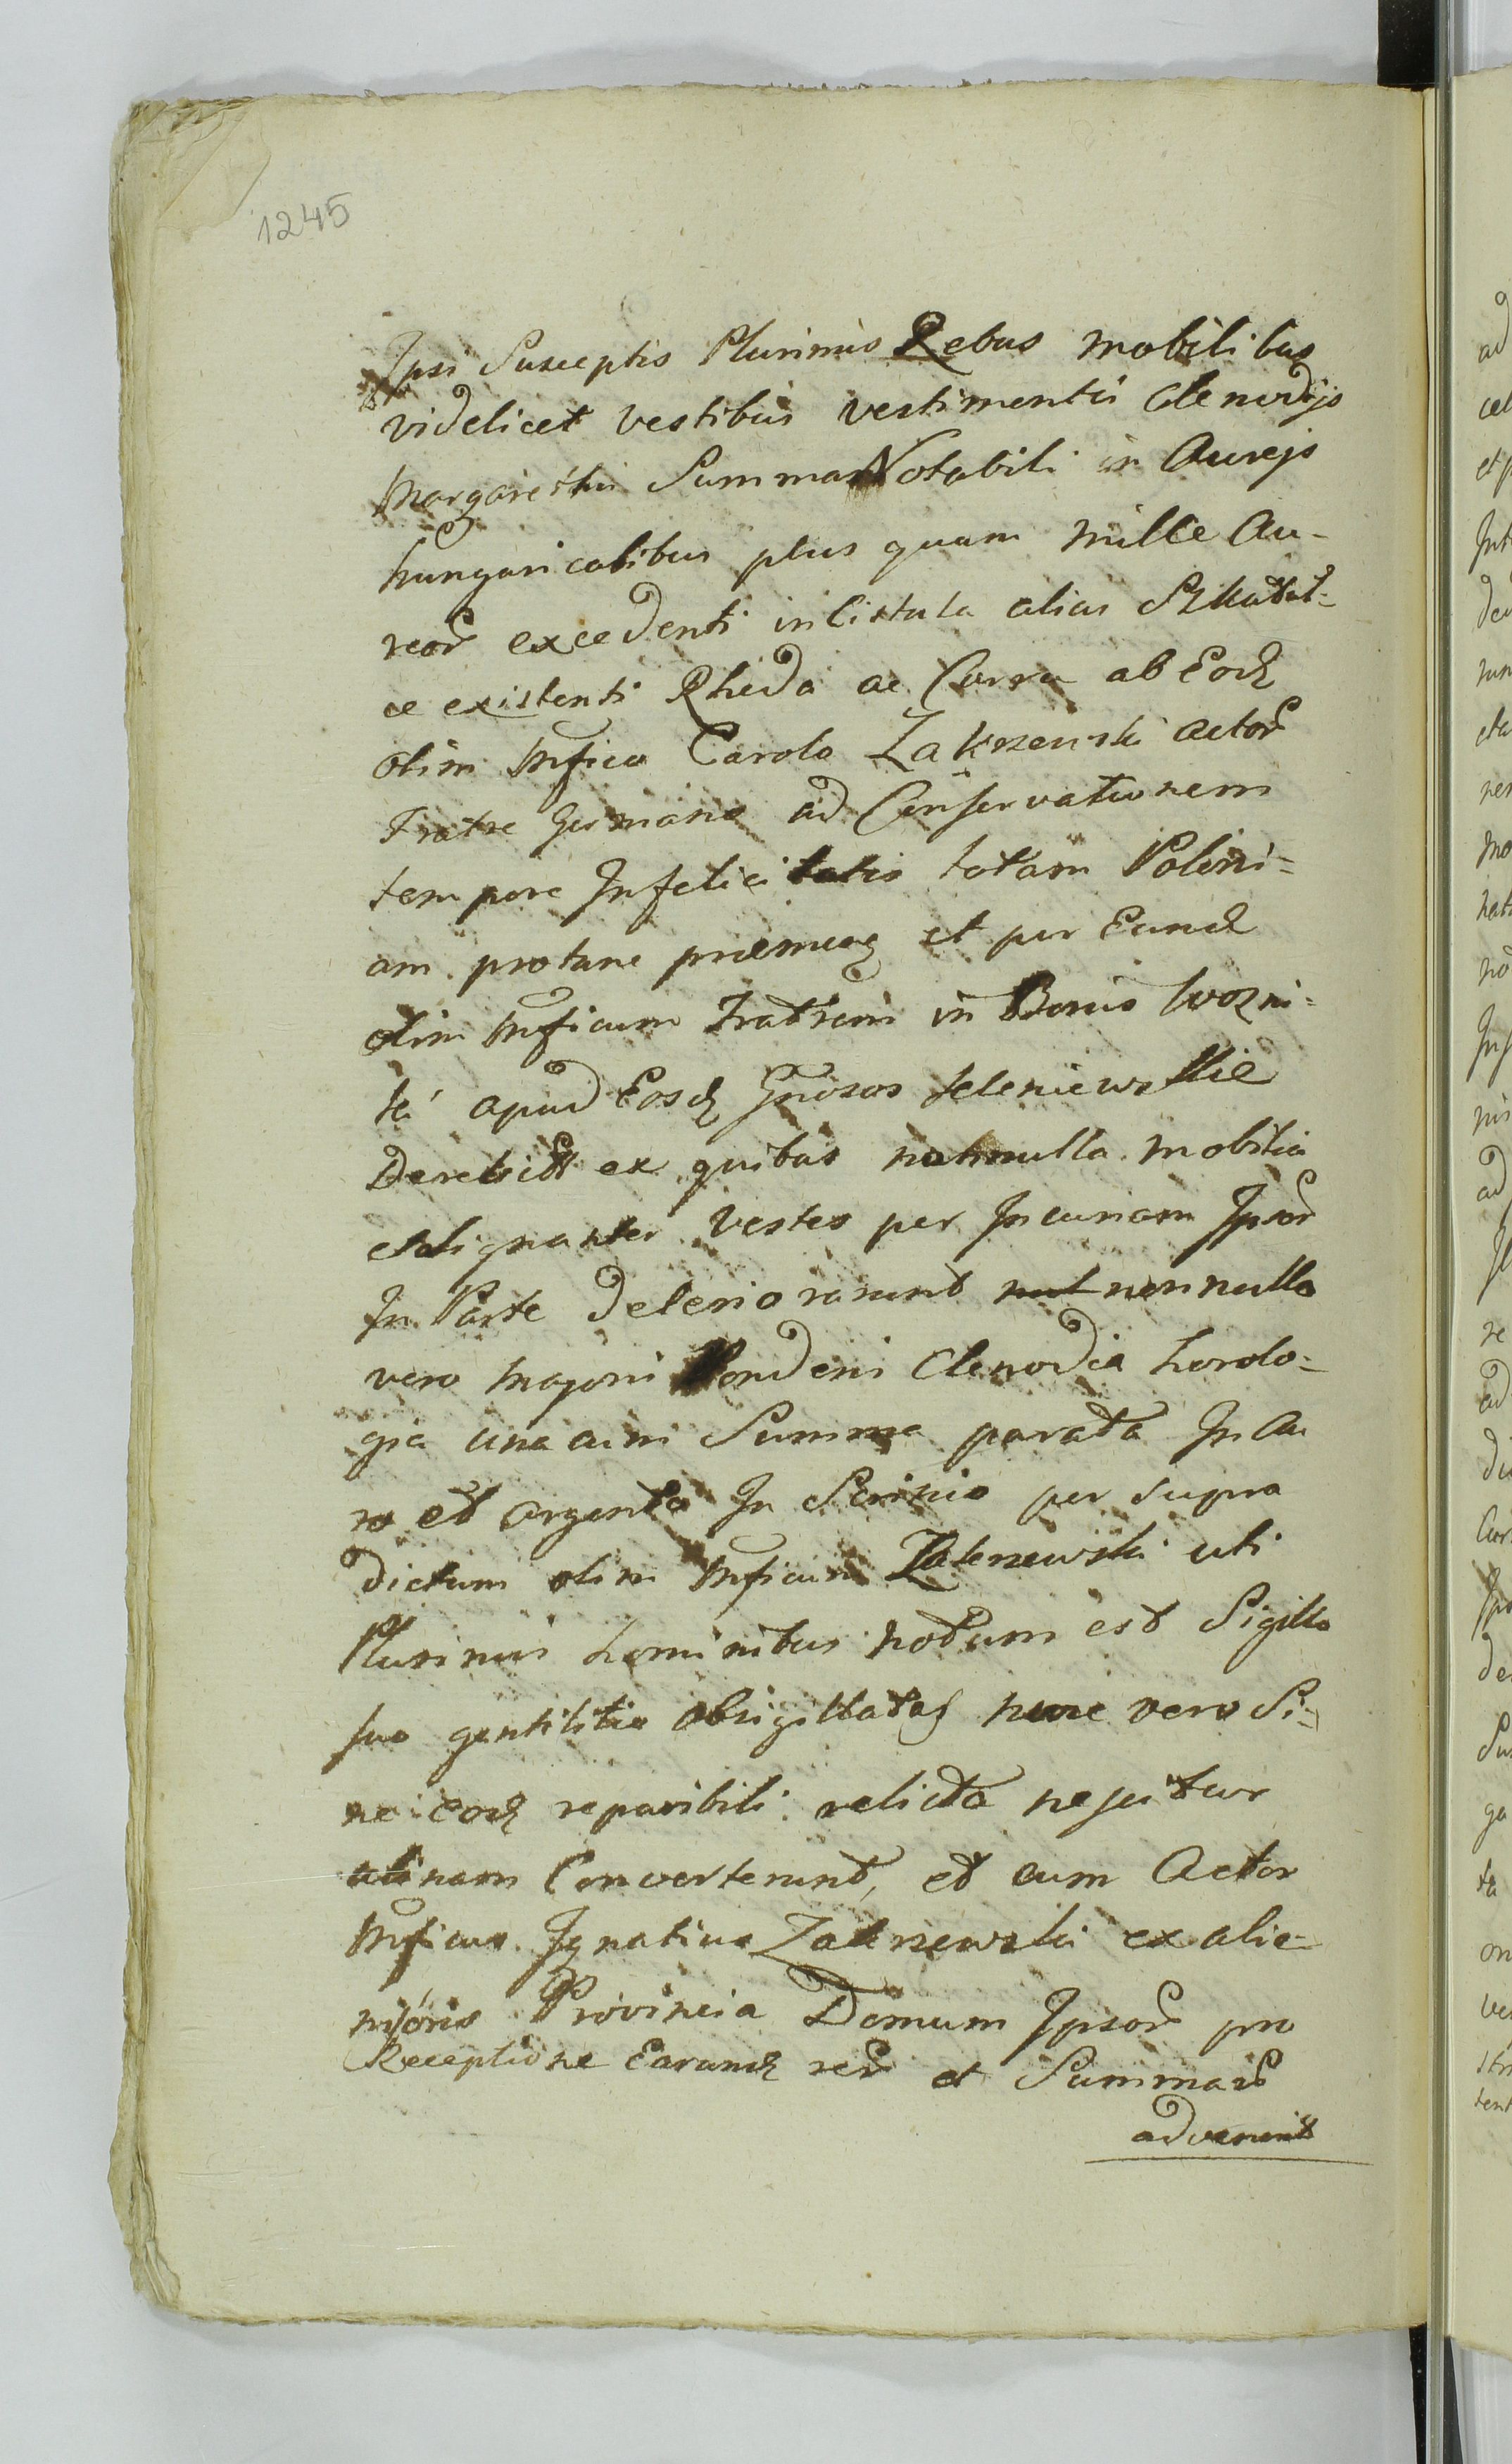 1245
Ipsi Susceptis Plurimis Rebus mobilibus
videlicet vestibus vestimentis Clenodijs
Margarethis Summa Notabili in Aureis
hungaricalibus plus quam mille Au-
reor excedenti in Cistula alias Szkatul-
ce existenti Rheda ac Curru ab Eod
olim Mfico Carolo Zakrzewski Actor
Fratre Germano ad Conservationem
tempore Infelicitatis totam Poloni-
am protunc et per Eund
olim Mficum Fratrem in Bonis Wozni-
ki apud Eosd Gnosos Jeleniewskie
Derelict ex quibus nonnulla mobilia
et signanter vestes per Incuriam Ipsor
In Parte deteriorarunt nonnulla
vero majoris Ponderis Clenodia horolo-
gia una cum Summa parata In Au
ro et argento In Scrinio per supra
dictum olim Mficum Zakrzewski uti
Plurimis hominibus notum est Sigillo
suo gentilitio obsigillata hunc vero Si-
ne eod reparibili relicta nescitur
Converterunt, et cum Actor
Mficus Ignatius Zakrzewski ex alie-
nioris Provincia Domum Ipsor pro
Receptione Earund rer et Summar
advenerit
ad